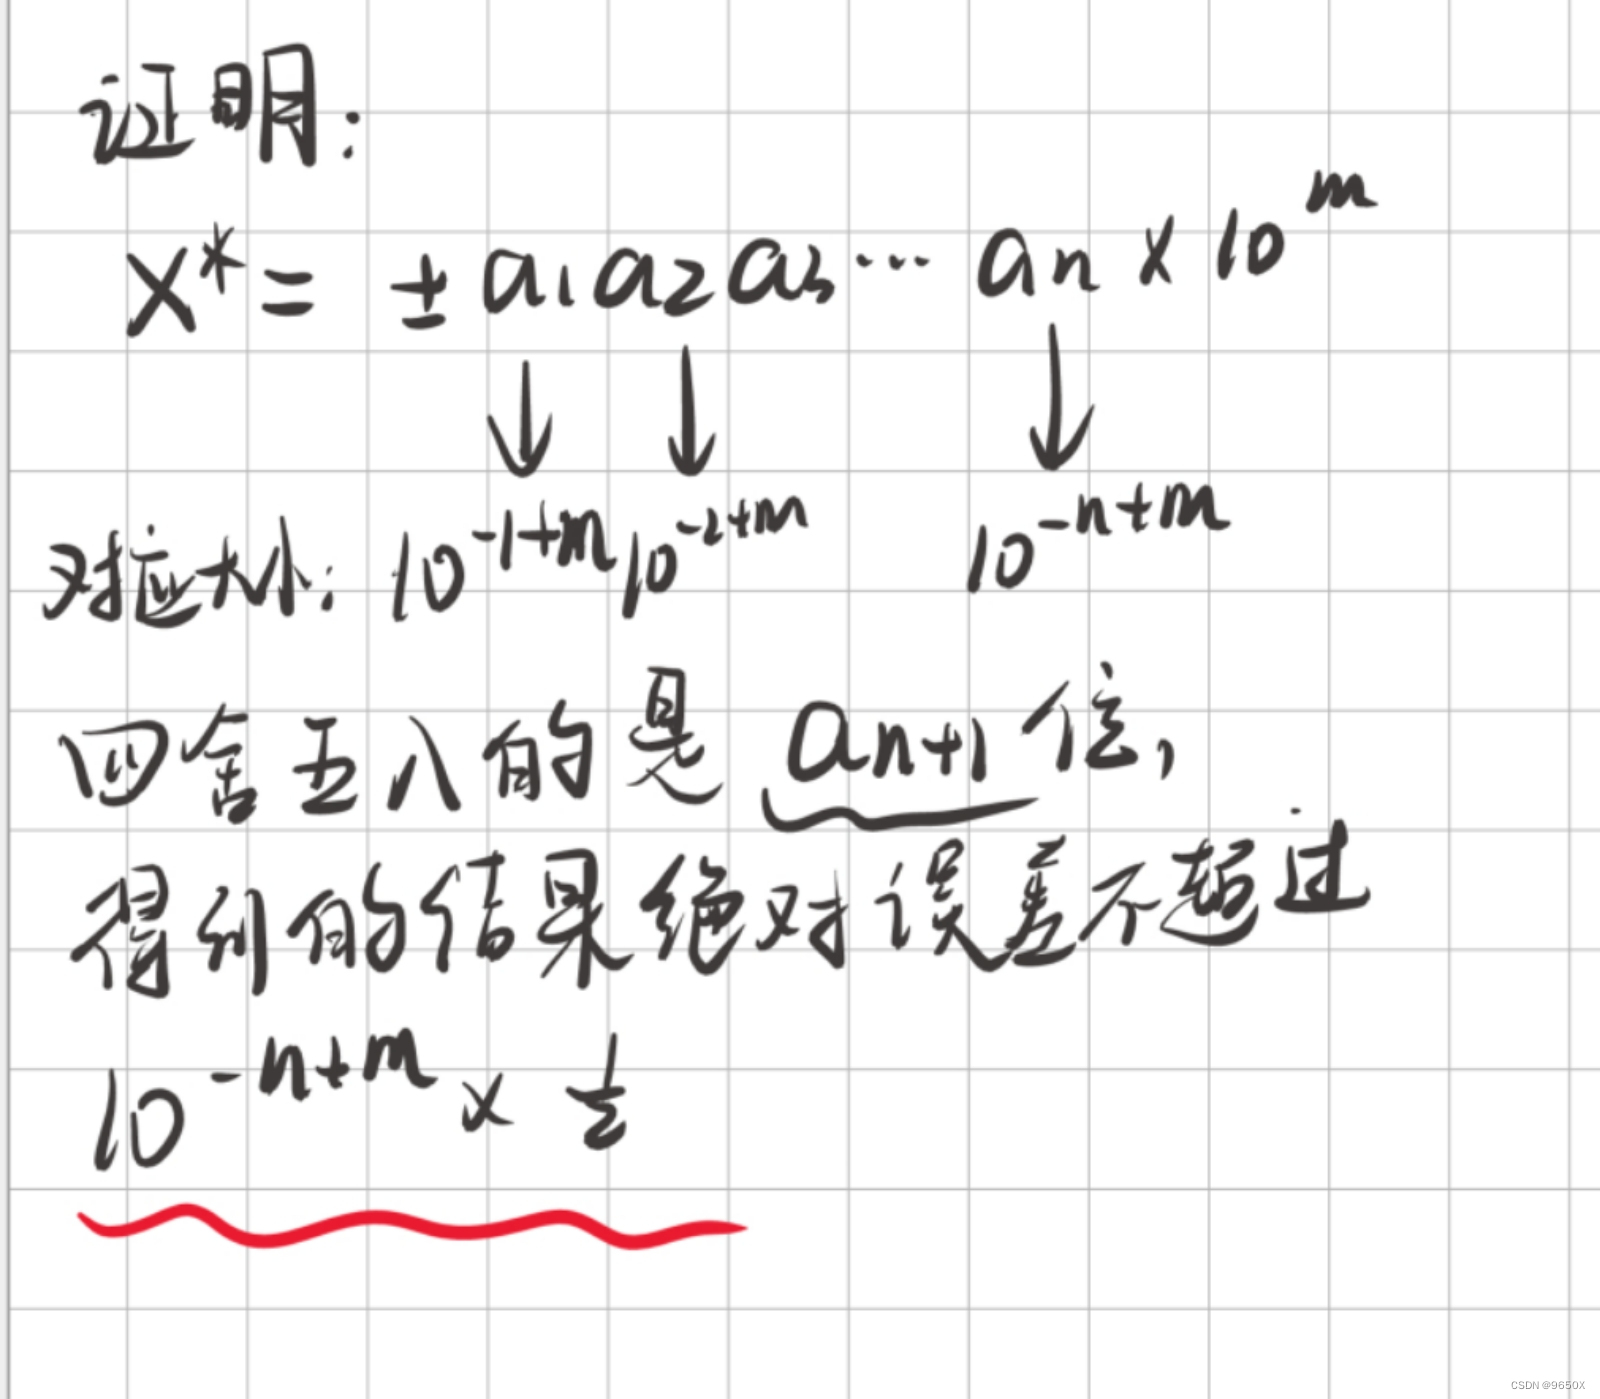 证明:
X* = ± a₁ a₂ a₃ … aₙ × 10^m
↓ ↓ ↓
对应大小: 10^(-1+m) 10^(-2+m) 10^(-n+m)
四舍五入的是 aₙ₊₁ 位,
得到的结果绝对误差不超过
10^(-n+m) × ½
CSDN @9650X